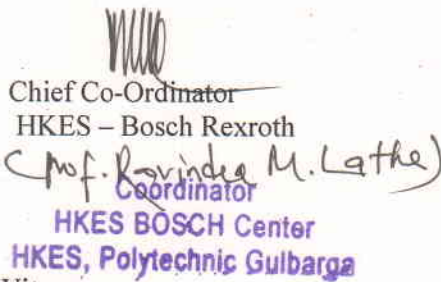 Chief Co-Ordinator
HKES – Bosch Rexroth
(Prof. Ravindra M. Lathe)
Coordinator
HKES BOSCH Center
HKES, Polytechnic Gulbarga